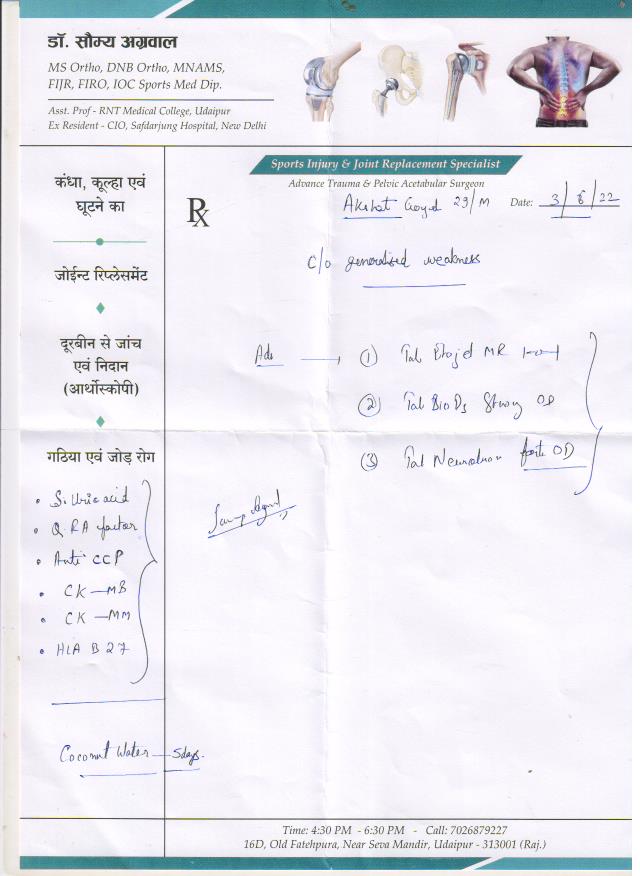 डॉ. सौम्य अग्रवाल
MS Ortho, DNB Ortho, MNAMS,
FIJR, FIRO, IOC Sports Med Dip.
Asst. Prof - RNT Medical College, Udaipur
Ex Resident - CIO, Safdarjung Hospital, New Delhi
Sports Injury & Joint Replacement Specialist
Advance Trauma & Pelvic Acetabular Surgeon
Rx
Akshat 29/M Date: 3/6/22
c/o generalised weakness
कंधा, कूल्हा एवं
घूटने का
जोईन्ट रिप्लेसमेंट
दूरबीन से जांच
एवं निदान
(आर्थोस्कोपी)
गठिया एवं जोड़ रोग
Adv
① Tab MR 1-0-1
② Tab Bio D3 Strong OD
③ Tab forte OD
• S. Uric acid
• Q. RA factor
• Anti CCP
• CK-MB
• CK-MM
• HLA B 27
Coconut Water - 5days.
Time: 4:30 PM - 6:30 PM - Call: 7026879227
16D, Old Fatehpura, Near Seva Mandir, Udaipur - 313001 (Raj.)